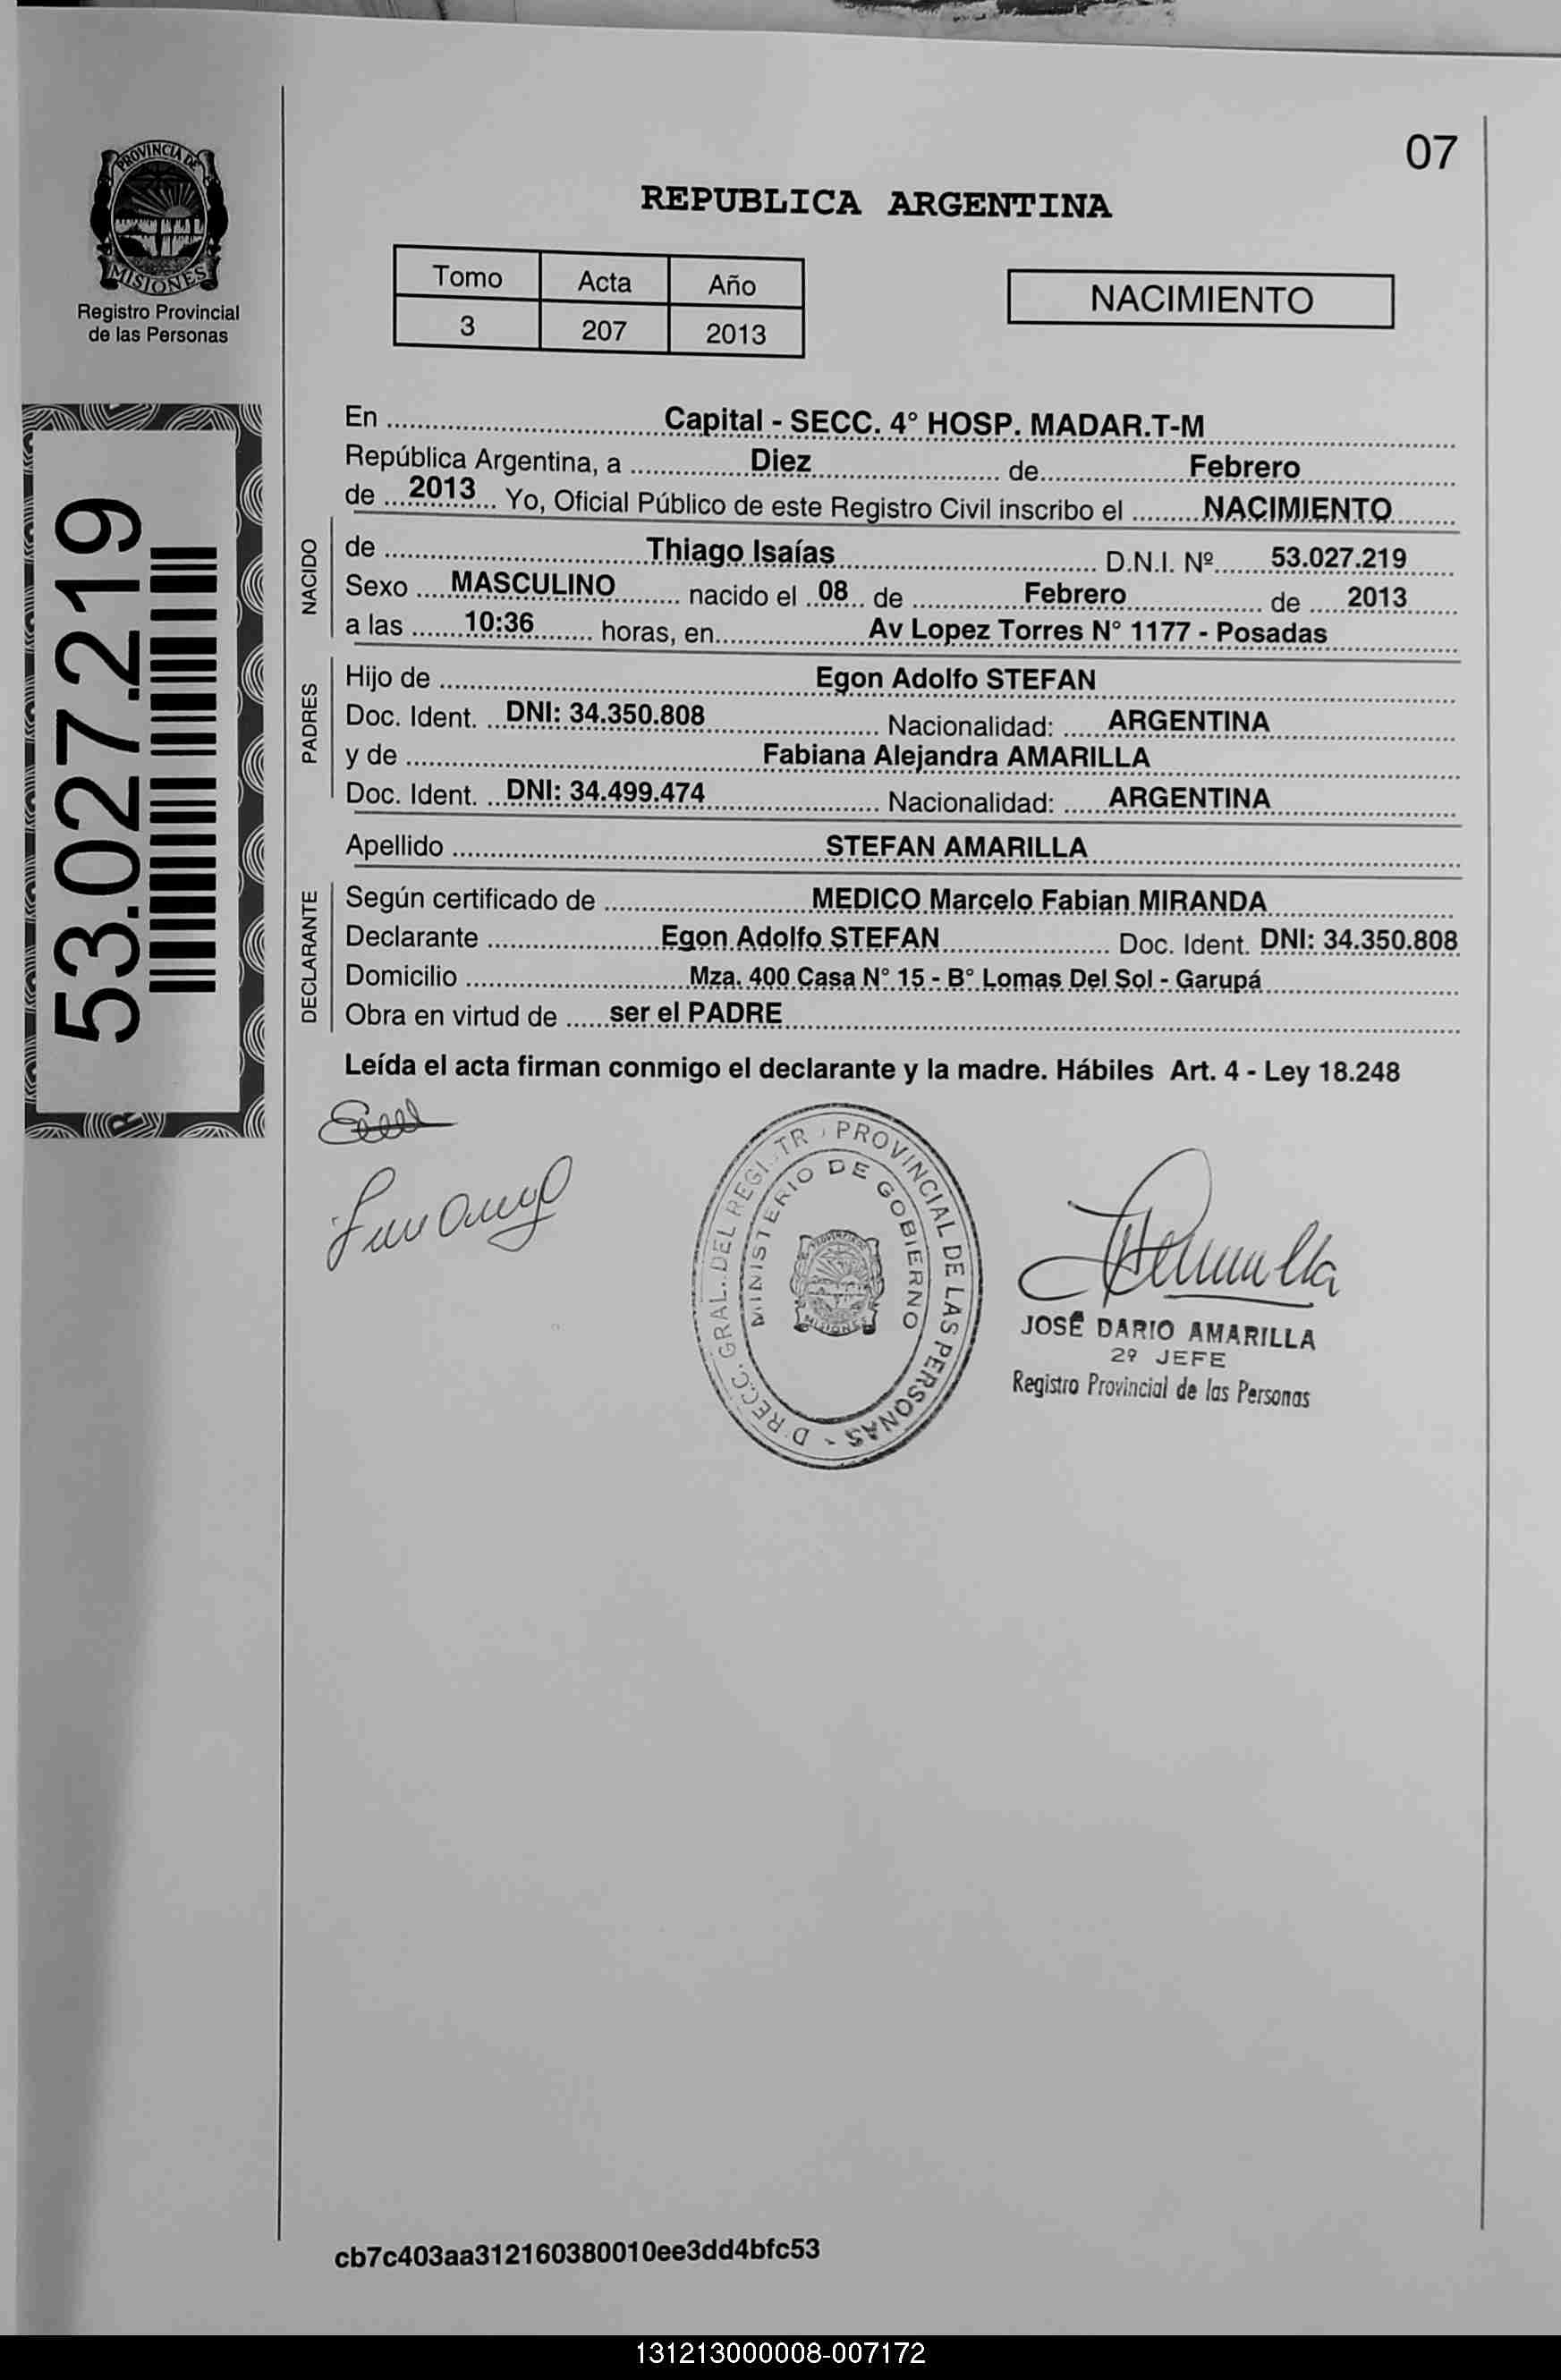 07
PROVINCIA DE
MISIONES
Registro Provincial
de las Personas
REPUBLICA ARGENTINA
Tomo Acta Año
3 207 2013
NACIMIENTO
53.027.219
En Capital - SECC. 4° HOSP. MADAR.T-M
República Argentina, a Diez de Febrero
de 2013 Yo, Oficial Público de este Registro Civil inscribo el NACIMIENTO
NACIDO
de Thiago Isaías D.N.I. Nº 53.027.219
Sexo MASCULINO nacido el 08 de Febrero de 2013
a las 10:36 horas, en Av Lopez Torres N° 1177 - Posadas
PADRES
Hijo de Egon Adolfo STEFAN
Doc. Ident. DNI: 34.350.808 Nacionalidad: ARGENTINA
y de Fabiana Alejandra AMARILLA
Doc. Ident. DNI: 34.499.474 Nacionalidad: ARGENTINA
Apellido STEFAN AMARILLA
DECLARANTE
Según certificado de MEDICO Marcelo Fabian MIRANDA
Declarante Egon Adolfo STEFAN Doc. Ident. DNI: 34.350.808
Domicilio Mza. 400 Casa N° 15 - B° Lomas Del Sol - Garupá
Obra en virtud de ser el PADRE
Leída el acta firman conmigo el declarante y la madre. Hábiles Art. 4 - Ley 18.248
GRAL. DEL REGISTR PROVINCIAL DE LAS PERSONAS -
MINISTERIO DE GOBIERNO
MISIONES
JOSÉ DARIO AMARILLA
2º JEFE
Registro Provincial de las Personas
cb7c403aa312160380010ee3dd4bfc53
131213000008-007172